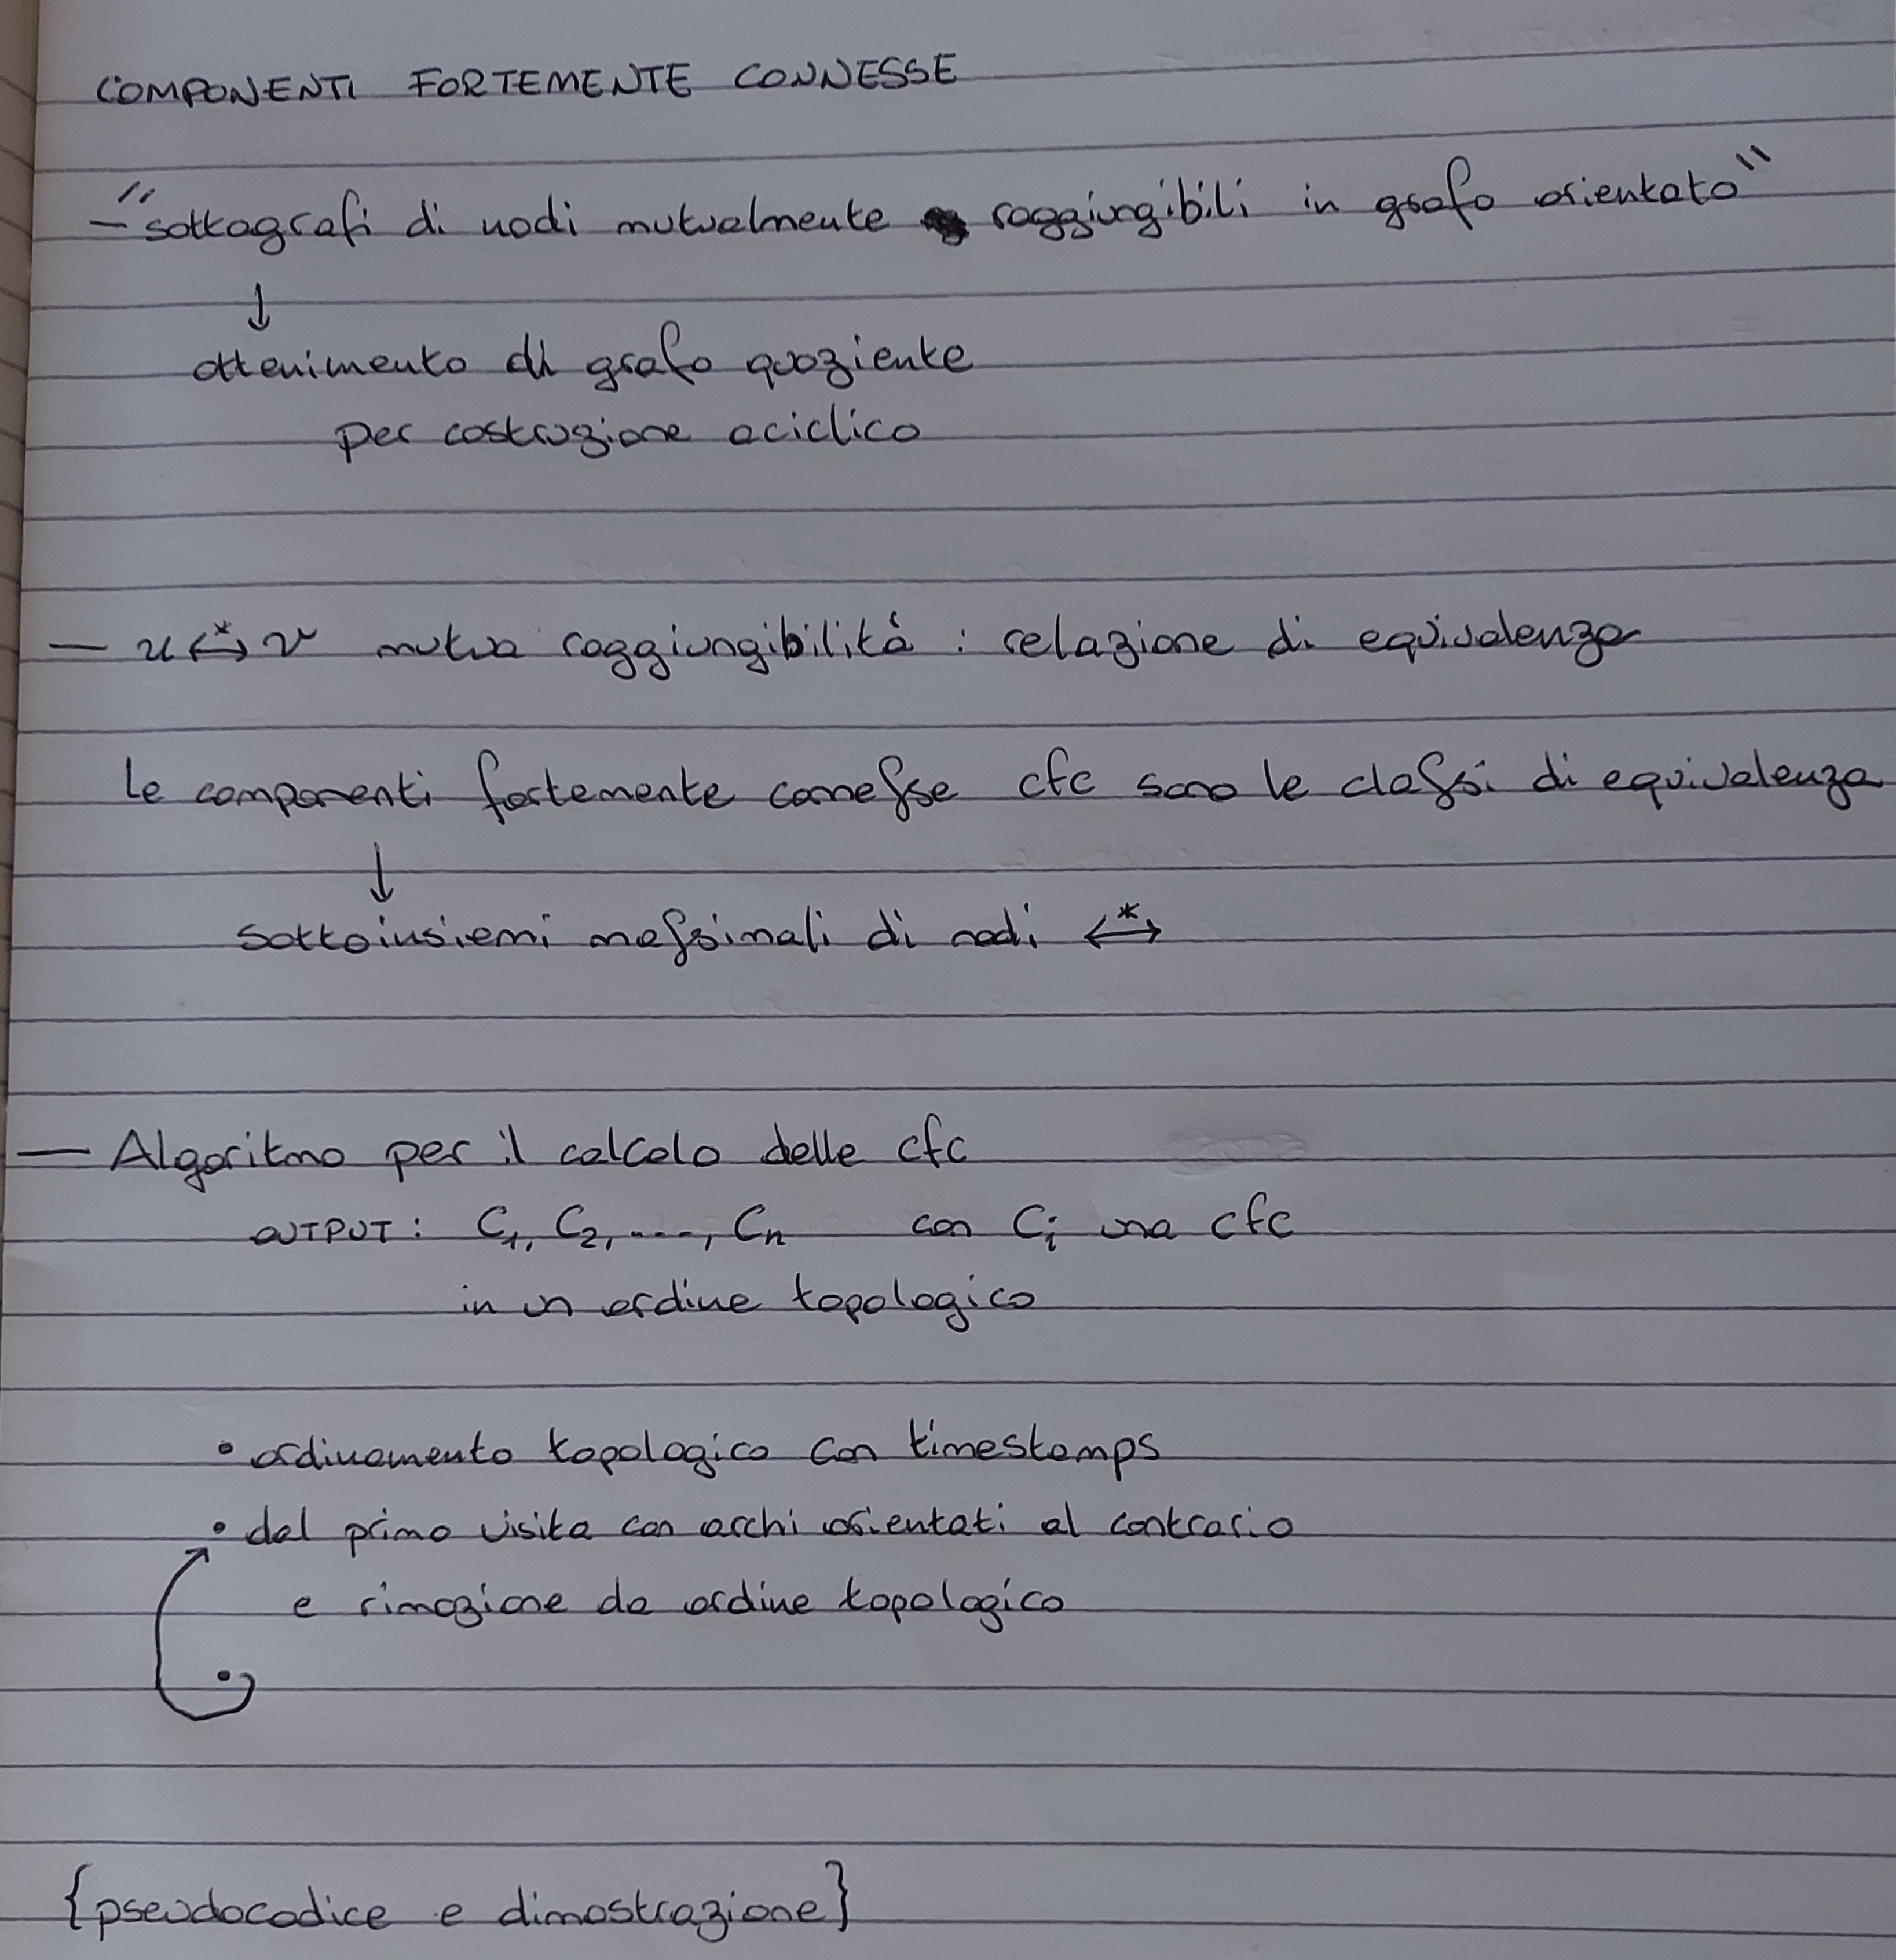 COMPONENTI FORTEMENTE CONNESSE
— "sottografi di nodi mutualmente raggiungibili in grafo orientato"
↓
ottenimento di grafo quoziente
per costruzione aciclico
— u ↔* v mutua raggiungibilità : relazione di equivalenza
le componenti fortemente connesse cfc sono le classi di equivalenza
↓
sottoinsiemi massimali di nodi ↔*
— Algoritmo per il calcolo delle cfc
OUTPUT : C1, C2, ...., Cn con Ci una cfc
in un ordine topologico
• ordinamento topologico con timestamps
• dal primo visita con archi orientati al contrario
e rimozione da ordine topologico
•
{pseudocodice e dimostrazione}